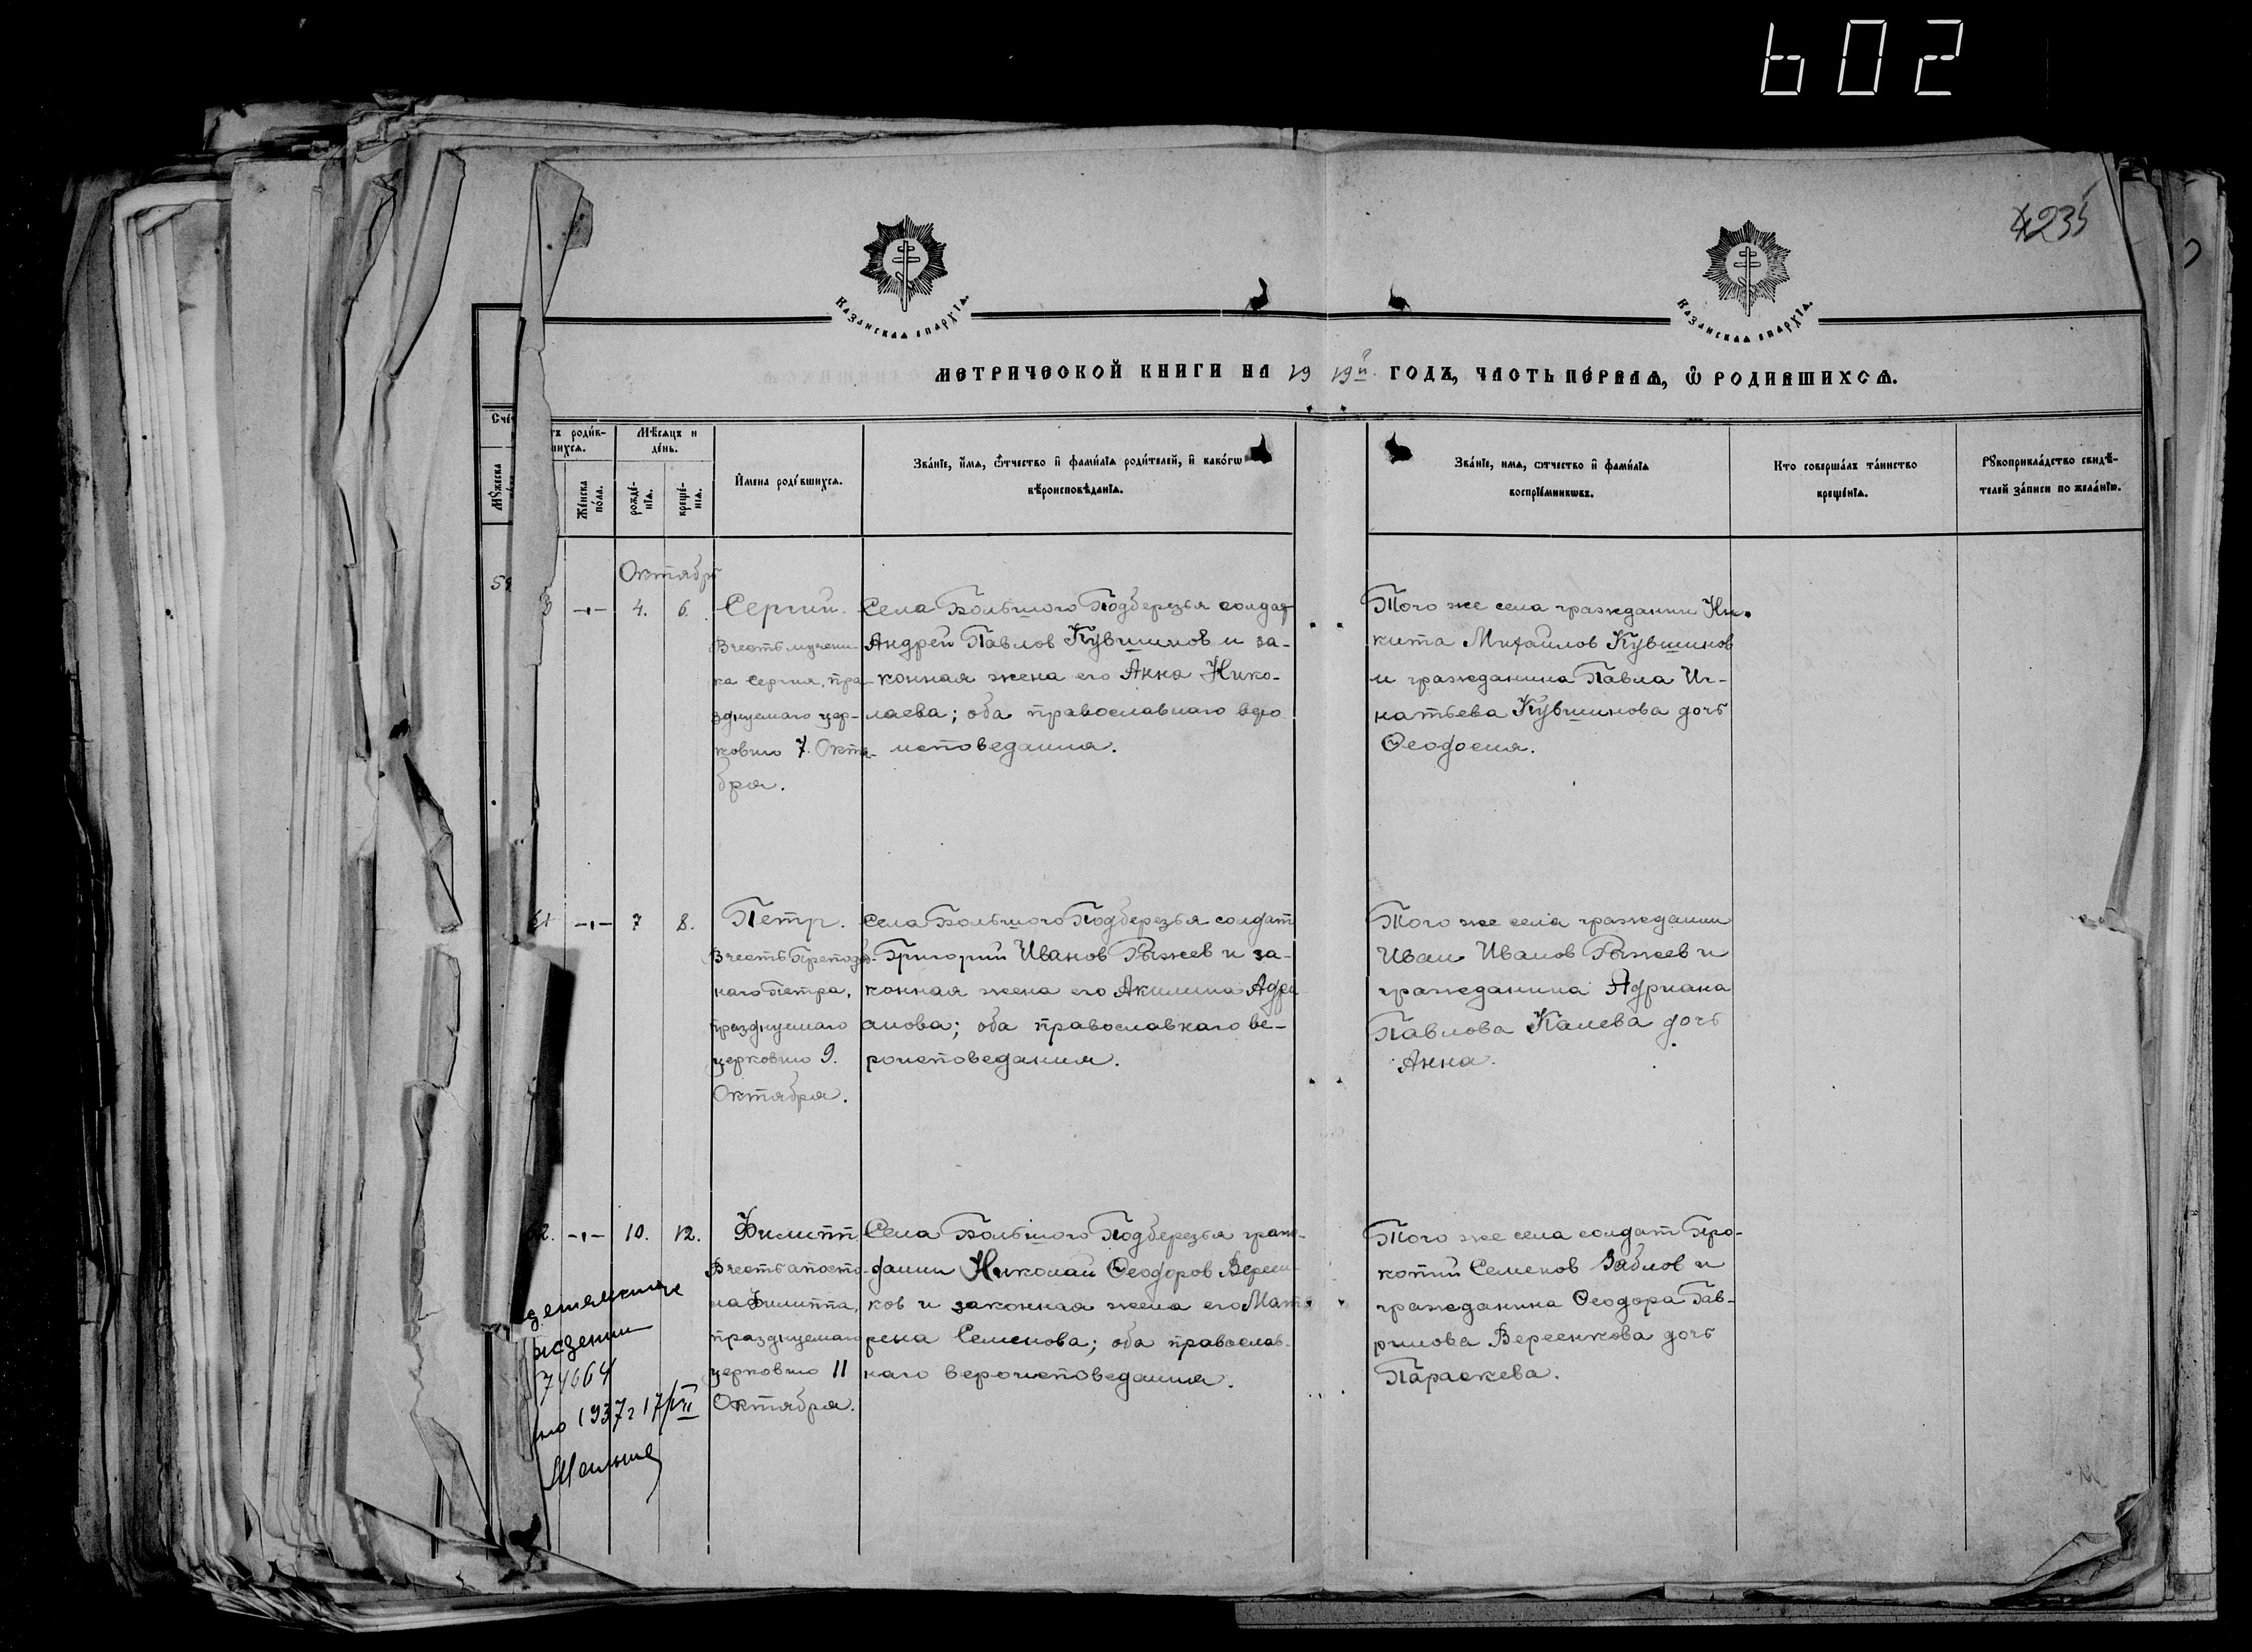 602
235
Казанская епархїа.
Казанская епархїа.
МЕТРИЧЕСКОЙ КНИГИ НА 1919й ГОДЪ, ЧАСТЬ ПЕРВАЯ, Ѽ РОДИВШИХСЯ.
Мѣсяцъ и
де́нь.
Мꙋ́жеска
Же́нска
по́ла.
рожде́-
нїѧ.
креще́-
нїѧ.
И҆мена роди́вшихсѧ.
Зва́нїе, и҆́мѧ, ѻ҆́тчество и҆ фами́лїѧ роди́телей, и҆ како́гѡ
вѣроисповѣ́данїѧ.
Зва́нїе, имѧ, ѻтчество и҆ фами́лїѧ
воспрїе́мникѡвъ.
Кто соверша́лъ та́инство
креще́нїѧ.
Рꙋкоприкла́дство свидѣ́-
телей за́писи по жела́нїю.
Октябрь
4. 6.
Сергий.
В честь мучени-
ка Сергия, пра-
зднуемаго цер-
ковию 7. Октя-
бря.
Села Большого Подберезья солдат
Андрей Павлов Кувшинов и за-
конная жена его Анна Нико-
лаева; оба православнаго веро
исповедания.
Того же села гражданин Ни-
кита Михаилов Кувшинов
и гражданина Павла Иг-
натьева Кувшинова дочь
Феодосия.
61 7 8.
Петр.
В честь Преподоб-
наго Петра,
празднуемаго
церковию 9.
Октября.
Села Большого Подберезья солдат
Григорий Иванов Рыжев и за-
конная жена его Акилина Адри-
анова; оба православнаго ве-
роисповедания.
Того же села гражданин
Иван Иванов Рыжев и
гражданина Адриана
Павлова Канева дочь
Анна.
62. 10. 12.
Филипп.
В честь апосто-
ла Филиппа,
празднуемаго
церковию 11
Октября.
Села Большого Подберезья граж-
данин Николай Феодоров Вересен-
ков и законная жена его Мат-
рена Семенова; оба православ-
наго вероисповедания.
Того же села солдат Про-
копий Семенов Зяблов и
гражданина Феодора Гав-
рилова Вересенкова дочь
Параскева.
74664
1937г 17/VII